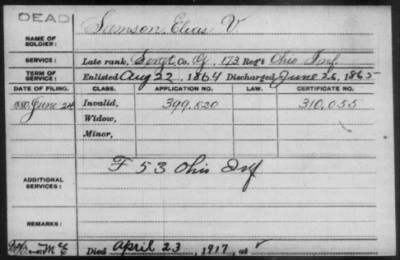 DEAD
NAME OF SOLDIER: Samson, Elias V.
SERVICE: Late rank, Sergt, Co. G, 173 Reg't Ohio Inf.
TERM OF SERVICE: Enlisted Aug 22, 1864 Discharged June 26, 1865
DATE OF FILING. CLASS. APPLICATION NO. LAW. CERTIFICATE NO.
1880 June 24 Invalid, 399.520 310.055
Widow,
Minor,
ADDITIONAL SERVICES: F 53 Ohio Inf
REMARKS:
Died April 23, 1917, at